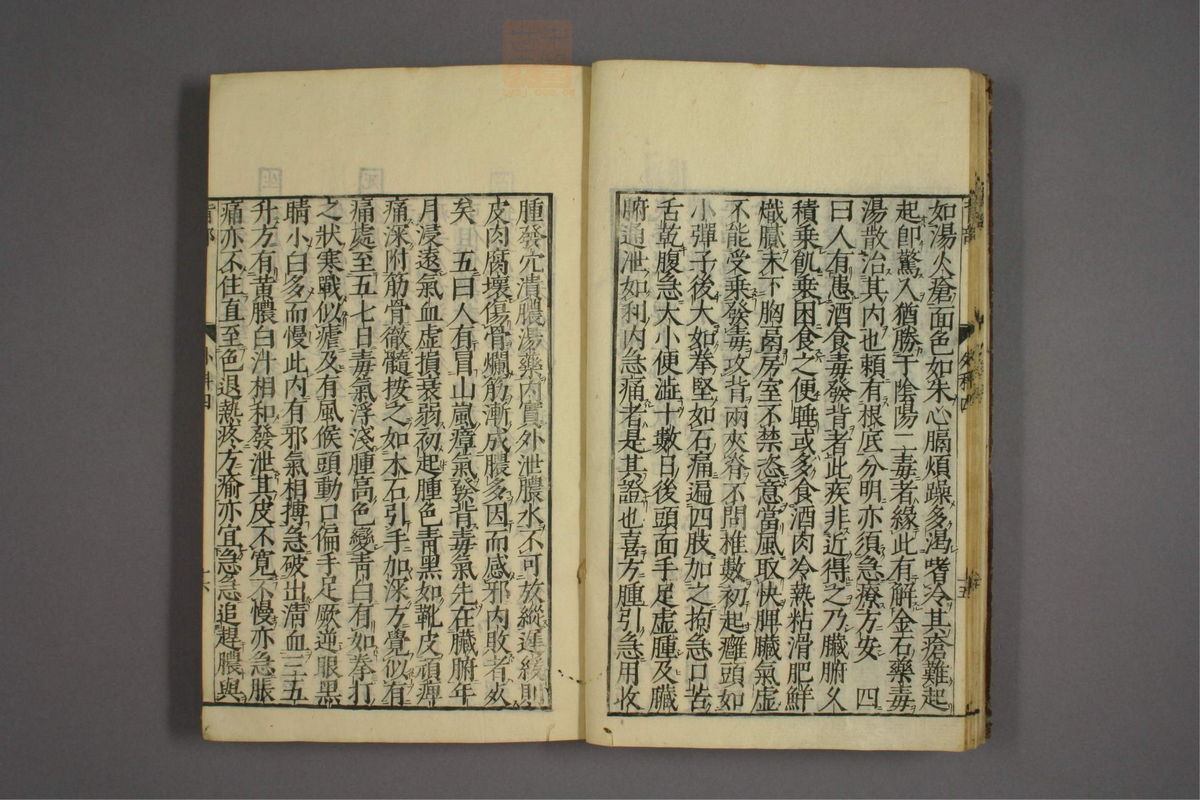 如湯火瘡面色如朱心膈煩躁多渴嗜冷其瘡難起
起卽驚人猶勝于陰陽二毒者緣此有解金石藥毒
湯散治其內也賴有根底分明亦須急療方安　四
曰人有患酒食毒發背者此疾非近得之乃臟腑久
積乗飢乗困食之便睡或多食酒肉冷熱粘滑肥鮮
熾膩末下胸鬲房室不禁恣意當風取快脾臟氣虛
不能受乗發毒攻背兩夾脊不問椎數初起癰頭如
小彈子後大如拳堅如石痛遍四肢加之拘急口苦
舌乾腹急大小便澁十數日後頭面手足虛腫及臟
腑通泄如利內急痛者是其證也喜方腫引急用收
腫發穴潰膿湯藥內實外泄膿水不可放縱遲緩則
皮肉腐壞傷骨爛筋漸成膿多因而感邪內敗者妖
矣　五曰人有冒山嵐瘴氣發背毒氣先在臟腑年
月浸遠氣血虛損衰弱初起腫色靑黑如靴皮頑痺
痛深附筋骨徹髓按之如木石引手加深方覺似有
痛處至五七日毒氣浮淺腫高色變靑白有如拳打
之狀寒戰似瘧及有風候頭動口偏手足厥逆眼黑
睛小白多而慢此內有邪氣相搏急破出淸血三五
升方有黃膿白汁相和發泄其皮不寬不慢亦急脹
痛亦不住直至色退熱疼方瘉亦宜急急追趕膿與